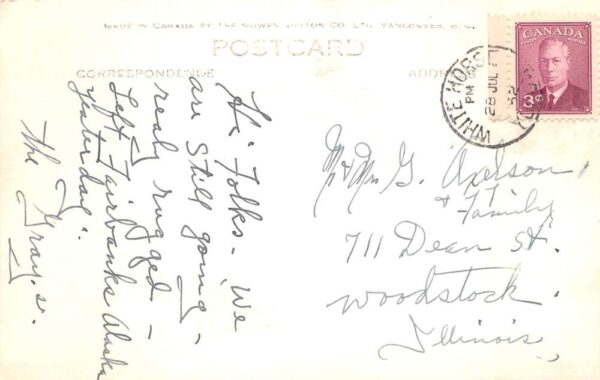 MADE IN CANADA BY THE GOWEN SUTTON CO. LTD. VANCOUVER, B.C.
POSTCARD
CORRESPONDENCE
ADDRESS
CANADA
POSTES POSTAGE
3¢
WHITE HORSE
PM
28 JUL
52
Hi Folks - We
are Still going -
realy rugged -
Left Fairbanks Alaska
yesterday.
The Gray's.
Mr & Mrs G. Axelson
& Family
711 Dean St.
Woodstock.
Illinois.